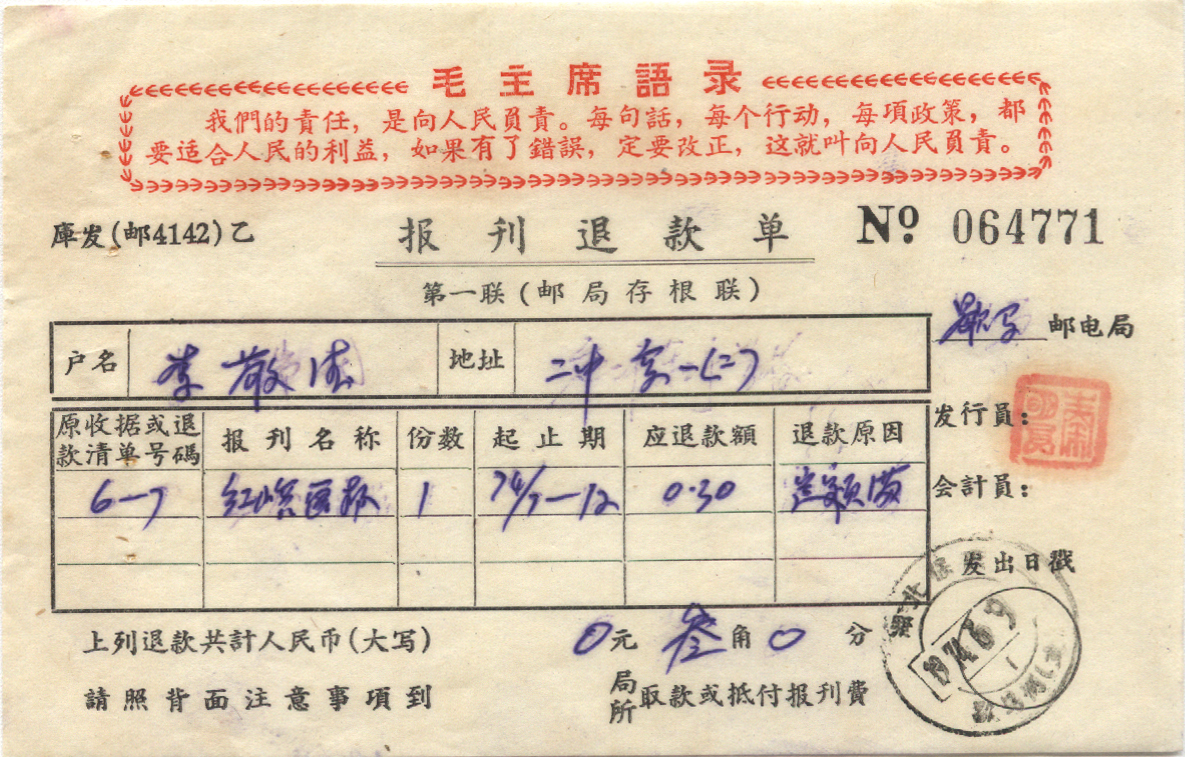 毛主席語录
我們的責任，是向人民負責。每句話，每个行动，每項政策，都
要适合人民的利益，如果有了錯誤，定要改正，这就叫向人民負責。
庫发(邮4142)乙
报刊退款单
№ 064771
第一联(邮局存根联)
邮电局
户名 李敬
地址 二中
发行員：
原收据或退款清单号碼 报刊名称 份数 起止期 应退款額 退款原因
6-7 1 74/7-12 0.30
会計員：
发出日戳
1974.6.9
上列退款共計人民币(大写) 0元叁角0分
請照背面注意事項到 局所 取款或抵付报刊費